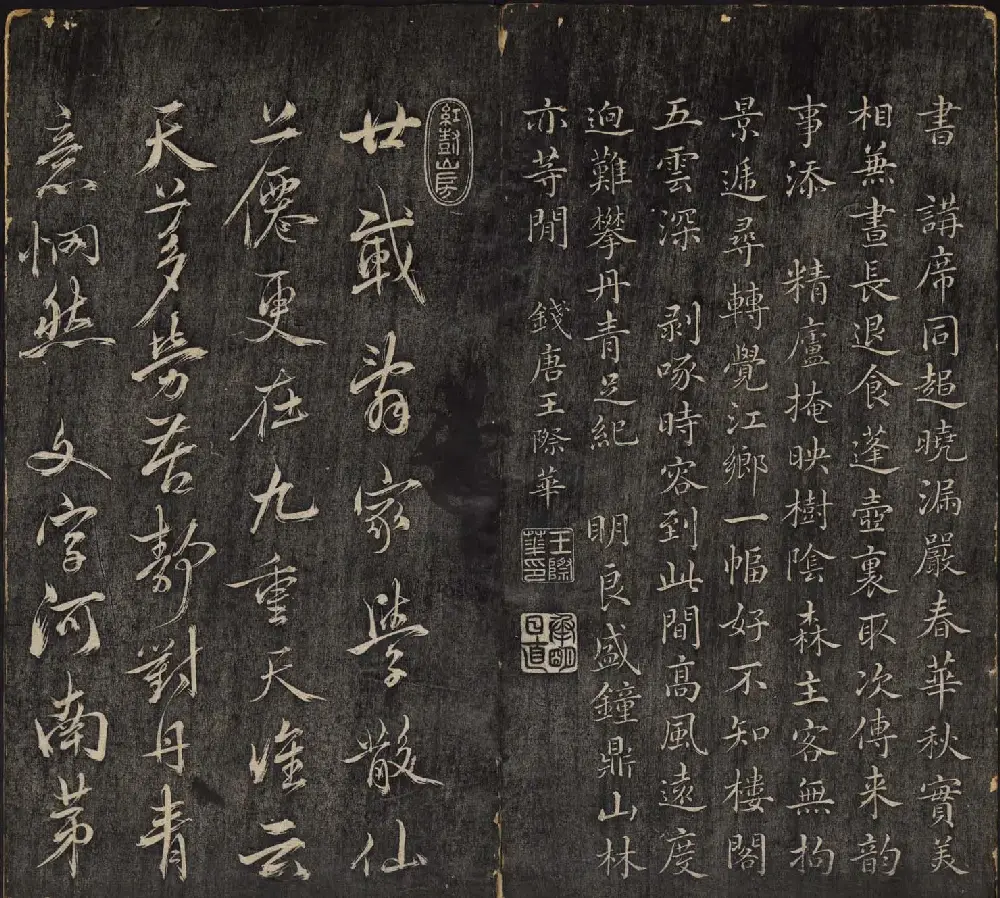 書 講席同趨曉漏嚴春華秋實美
相兼晝長退食蓬壺裏取次傳来韵
事添 精廬掩映樹陰森主客無拘
景遞尋轉覺江鄉一幅好不知樓閣
五雲深 剥啄時容到此間高風遠度
迥難攀丹青足紀 明良盛鐘鼎山林
亦等閒 錢唐王際華
王際華印
紅對山房
廿載
家學散仙
僊更在九重天誰云
天勞苦靜對丹青
意惘然 文字河南第